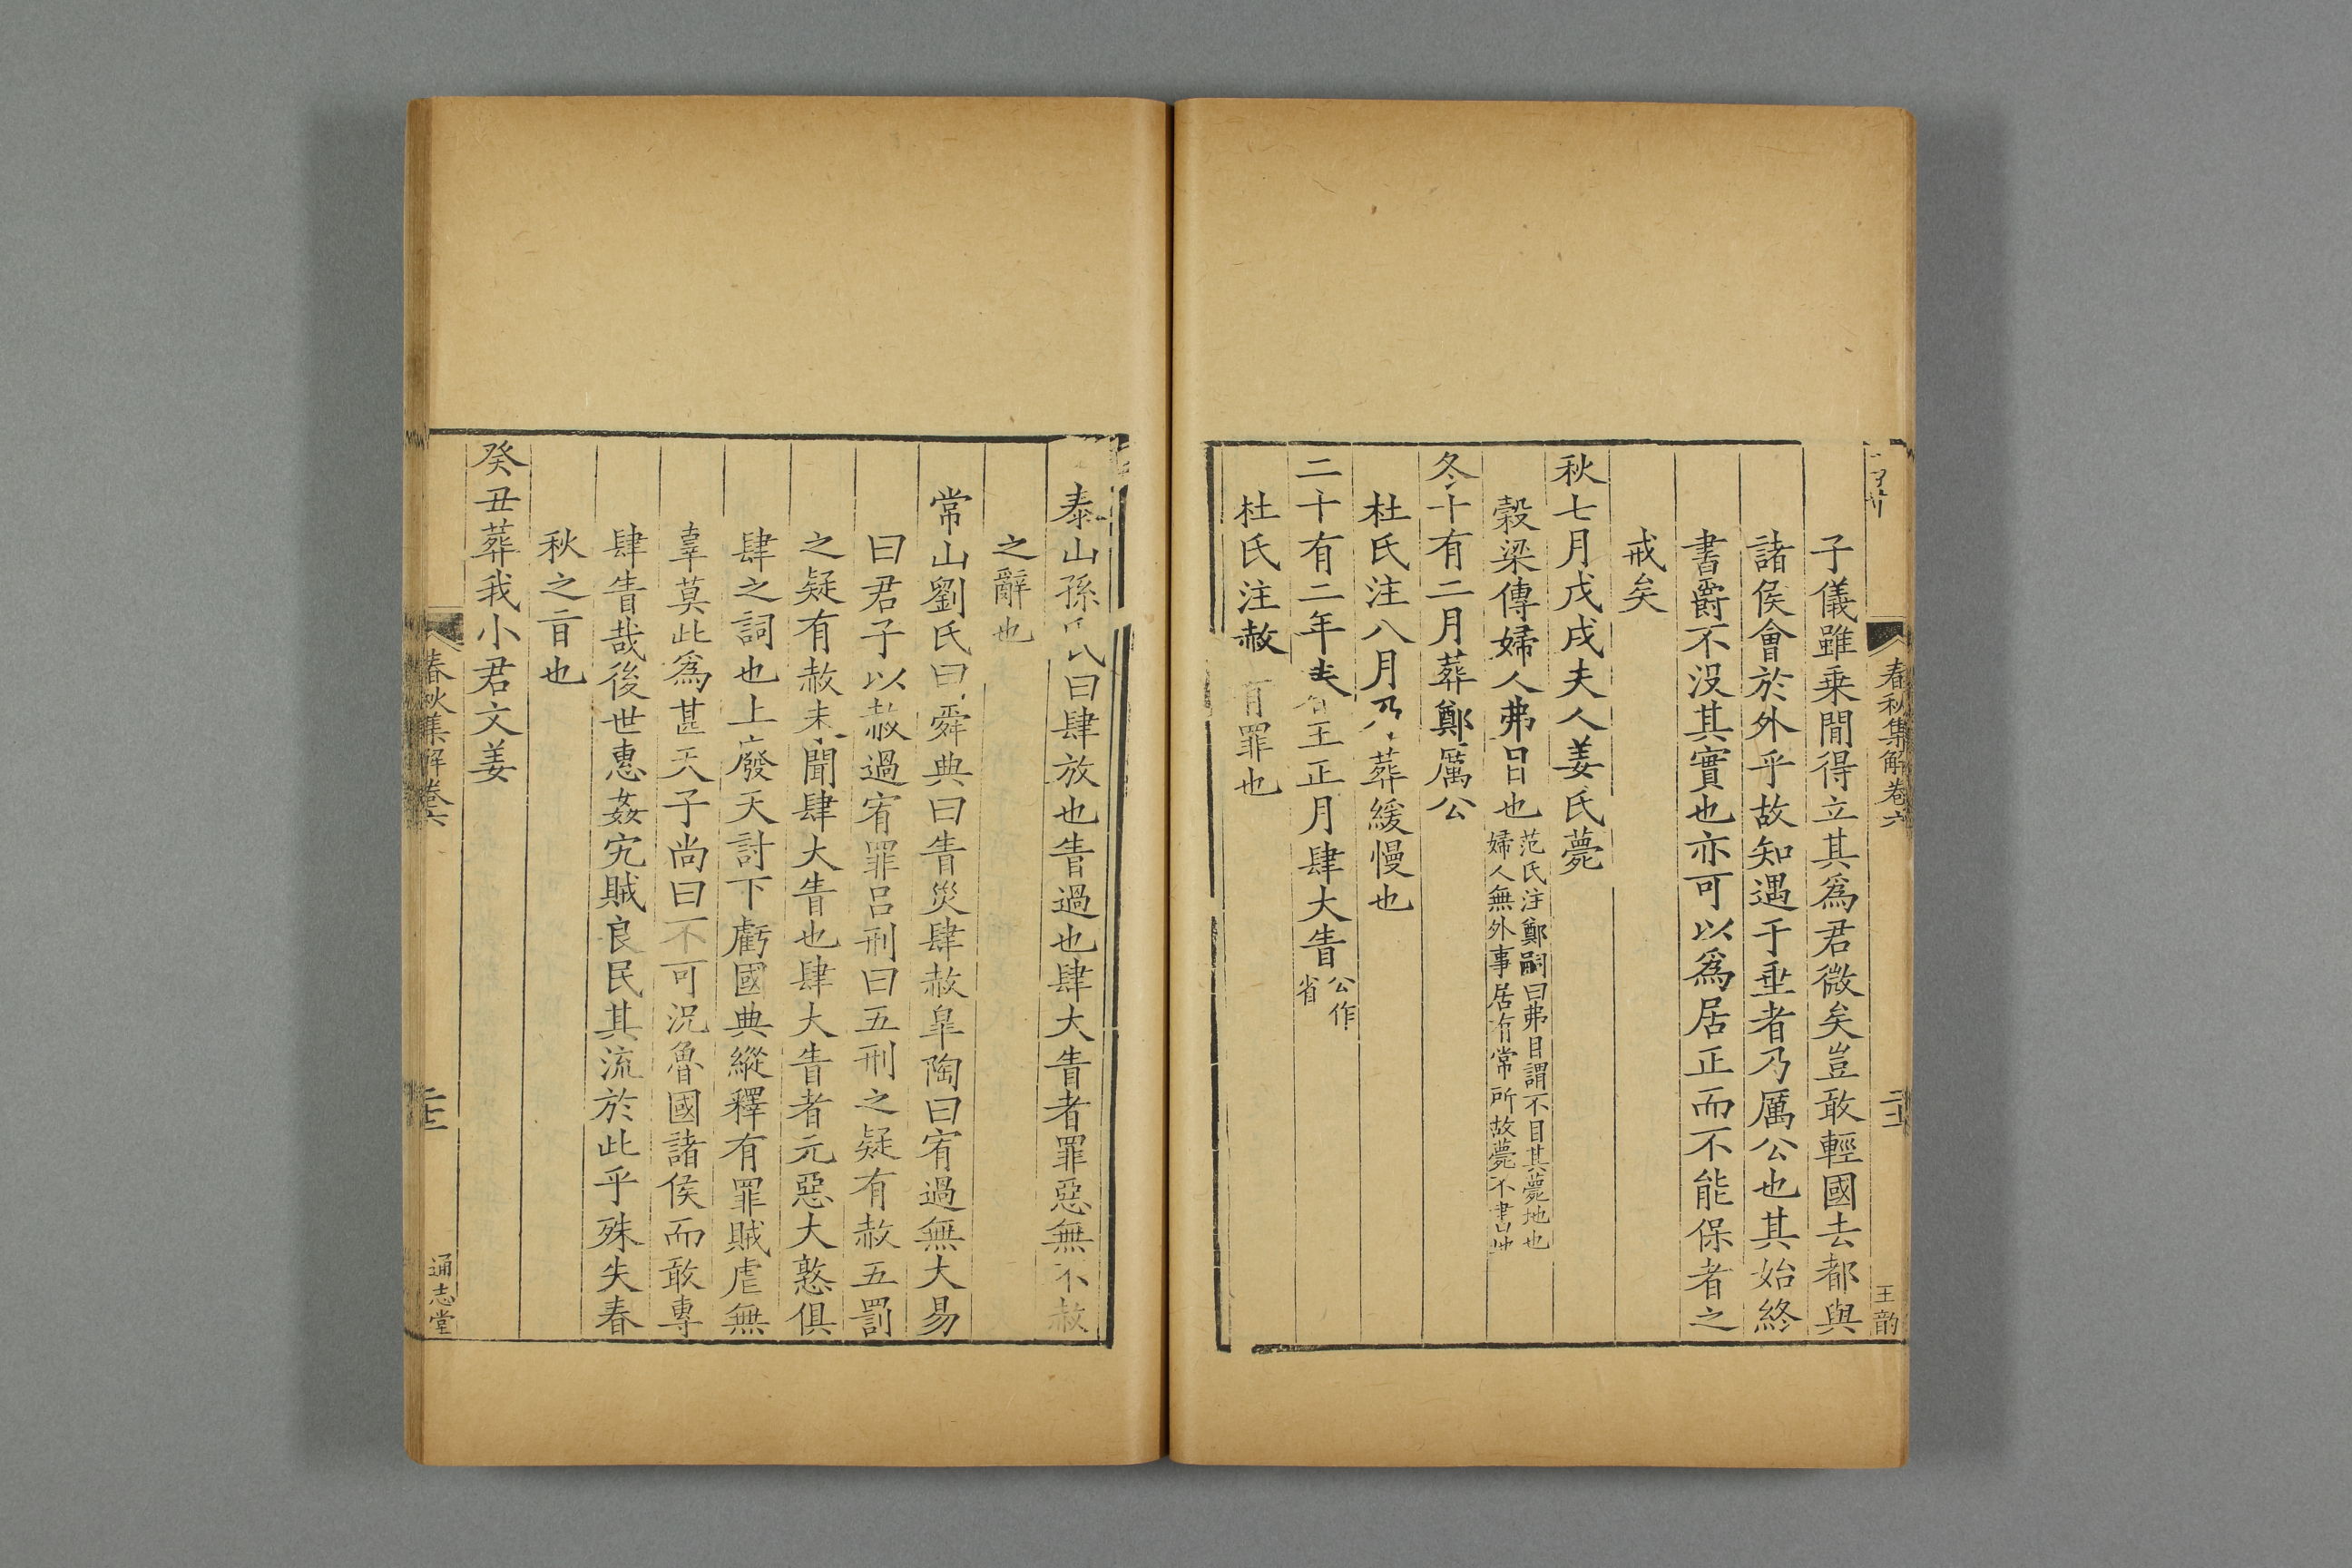 春秋集解卷六
二十二
王韵
子儀雖乗間得立其爲君微矣豈敢輕國去都與
諸侯會於外乎故知遇于垂者乃厲公也其始終
書爵不没其實也亦可以爲居正而不能保者之
戒矣
秋七月戊戌夫人姜氏薨
穀梁傳婦人弗目也
范氏注鄭嗣曰弗目謂不目其薨地也
婦人無外事居有常所故薨不書地
冬十有二月葬鄭厲公
杜氏注八月乃葬緩慢也
二十有二年春王正月肆大眚
公作
省
杜氏注赦有罪也
泰山孫氏曰肆放也眚過也肆大眚者罪惡無不赦
之辭也
常山劉氏曰舜典曰眚災肆赦臯陶曰宥過無大易
曰君子以赦過宥罪吕刑曰五刑之疑有赦五罰
之疑有赦未聞肆大眚也肆大眚者元惡大憝俱
肆之詞也上廢天討下虧國典縱釋有罪賊虐無
辜莫此爲甚天子尚曰不可況魯國諸侯而敢專
肆眚哉後世惠姦宄賊良民其流於此乎殊失春
秋之㫖也
癸丑葬我小君文姜
春秋集解卷六
二十三
通志堂